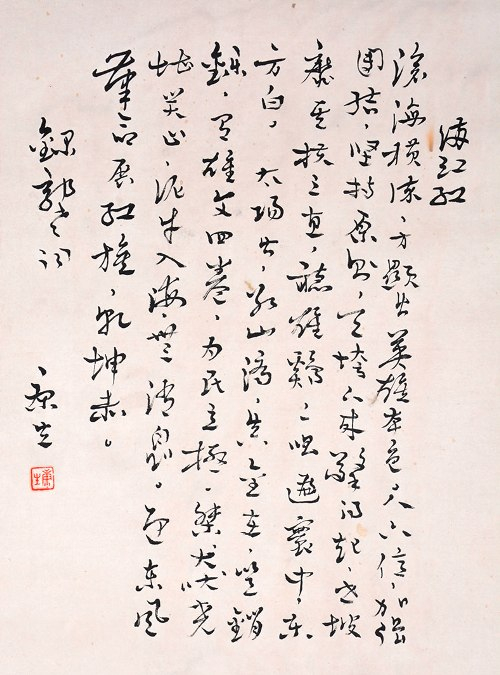 满江红
滄海横流、方顯出英雄本色、人六億、加强
團结、坚持原则、天垮下来擎得起、世披
靡矣扶之直、聽雄鷄、一唱遍寰中、东
方白、太陽出、冰山滴、真金在、豈销
鑠、有雄文四卷、为民立極。桀犬吠堯
堪笑止、泥牛入海、無消息。迎东风
革命展红旗、乾坤赤。
録郭老词
康生
康生